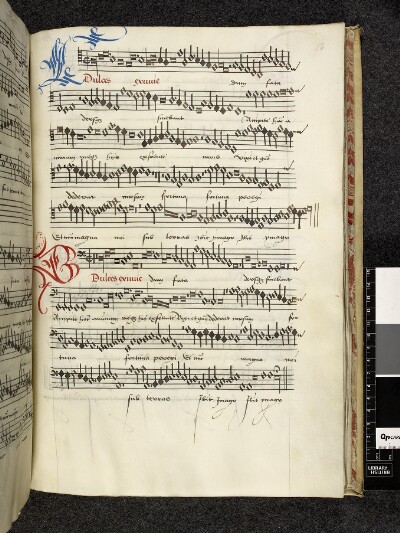 Dulces exuvie dum fata
deusque sinebant Accipite hanc a
nimam meque his exsolvite curis Vixi et que
dederat cursum fortuna fortuna peregi
Et nunc magna mei sub terras ibit ymago Ibit ymago
Dulces exuvie dum fata deusque sinebant
Accipite hanc animam meque his exsolvite Vixi et que dederat cursum for
tuna fortuna peregi Et nunc magna mei
sub terras Ibit ymago Ibit ymago
LIBRARY